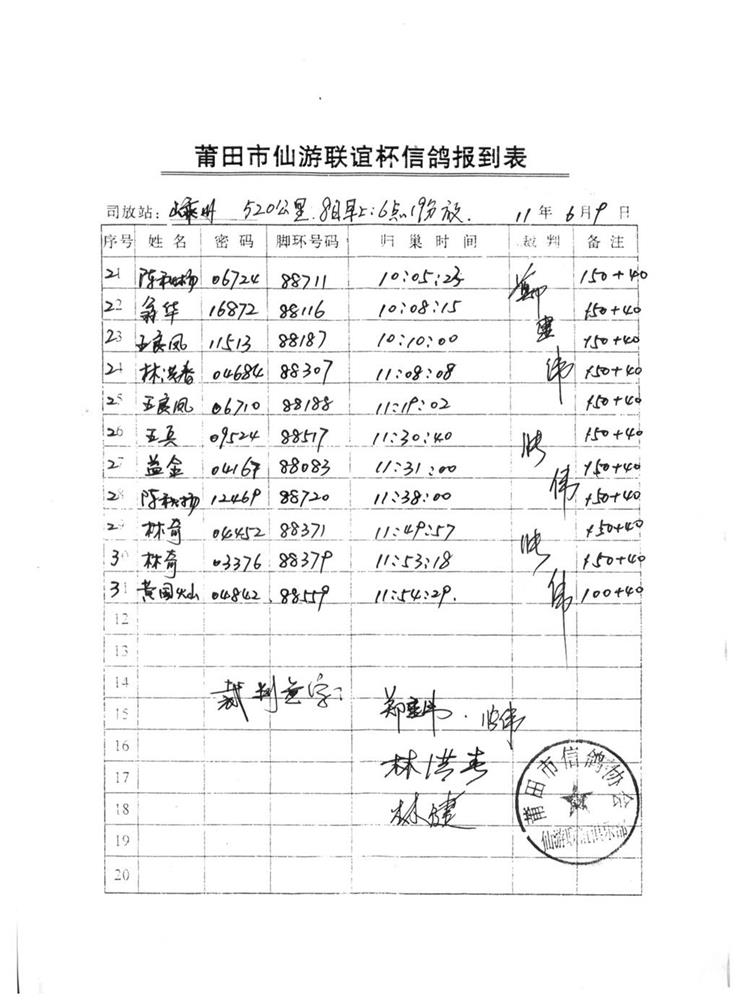 莆田市仙游联谊杯信鸽报到表
司放站：嵊州 520公里 8日早上:6点19分放. 11年6月9日
序号 姓名 密码 脚环号码 归巢时间 裁判 备注
21 陈秋扬 06724 88711 10:05:23 150+40
22 翁华 16872 88116 10:08:15 150+40
23 王良凤 11513 88187 10:10:00 150+40
24 林洪春 04684 88307 11:08:08 150+40
25 王良凤 06710 88188 11:19:02 150+40
26 王兵 09524 88517 11:30:40 150+40
27 益金 04167 88083 11:31:00 150+40
28 陈秋扬 12469 88720 11:38:00 150+40
29 林奇 04452 88371 11:49:57 150+40
30 林奇 03376 88379 11:53:18 150+40
31 黄国灿 04842 88559 11:54:29. 100+40
12
13
14 裁判签字:
15 郑建伟.
16
17 林洪春
18 林健
19
20
莆田市信鸽协会